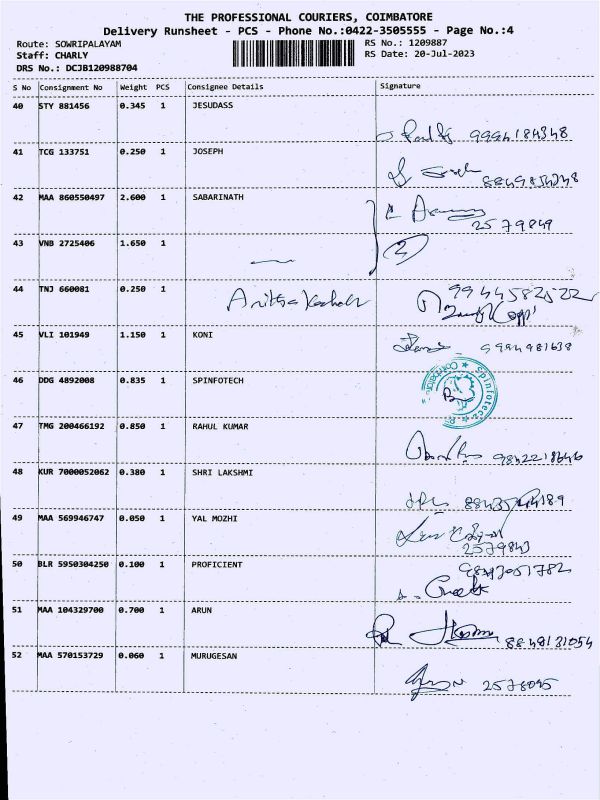 THE PROFESSIONAL COURIERS, COIMBATORE
Delivery Runsheet - PCS - Phone No.:0422-3505555 - Page No.:4
Route: SOWRIPALAYAM
RS No.: 1209887
Staff: CHARLY
RS Date: 20-Jul-2023
DRS No.: DCJB120988704
S No Consignment No Weight PCS Consignee Details Signature
40 STY 881456 0.345 1 JESUDASS
9994184348
41 TCG 133751 0.250 1 JOSEPH
8849854248
42 MAA 860550497 2.600 1 SABARINATH
2579849
43 VNB 2725406 1.650 1
2
44 TNJ 660081 0.250 1
9944582522
45 VLI 101949 1.150 1 KONI
9994981638
46 DDG 4892008 0.835 1 SPINFOTECH
Spinfotecz
47 TMG 200466192 0.850 1 RAHUL KUMAR
9842218646
48 KUR 7000052062 0.380 1 SHRI LAKSHMI
49 MAA 569946747 0.050 1 YAL MOZHI
2579843
50 BLR 5950304250 0.100 1 PROFICIENT
9843051782
51 MAA 104329700 0.700 1 ARUN
8848131054
52 MAA 570153729 0.060 1 MURUGESAN
2578095